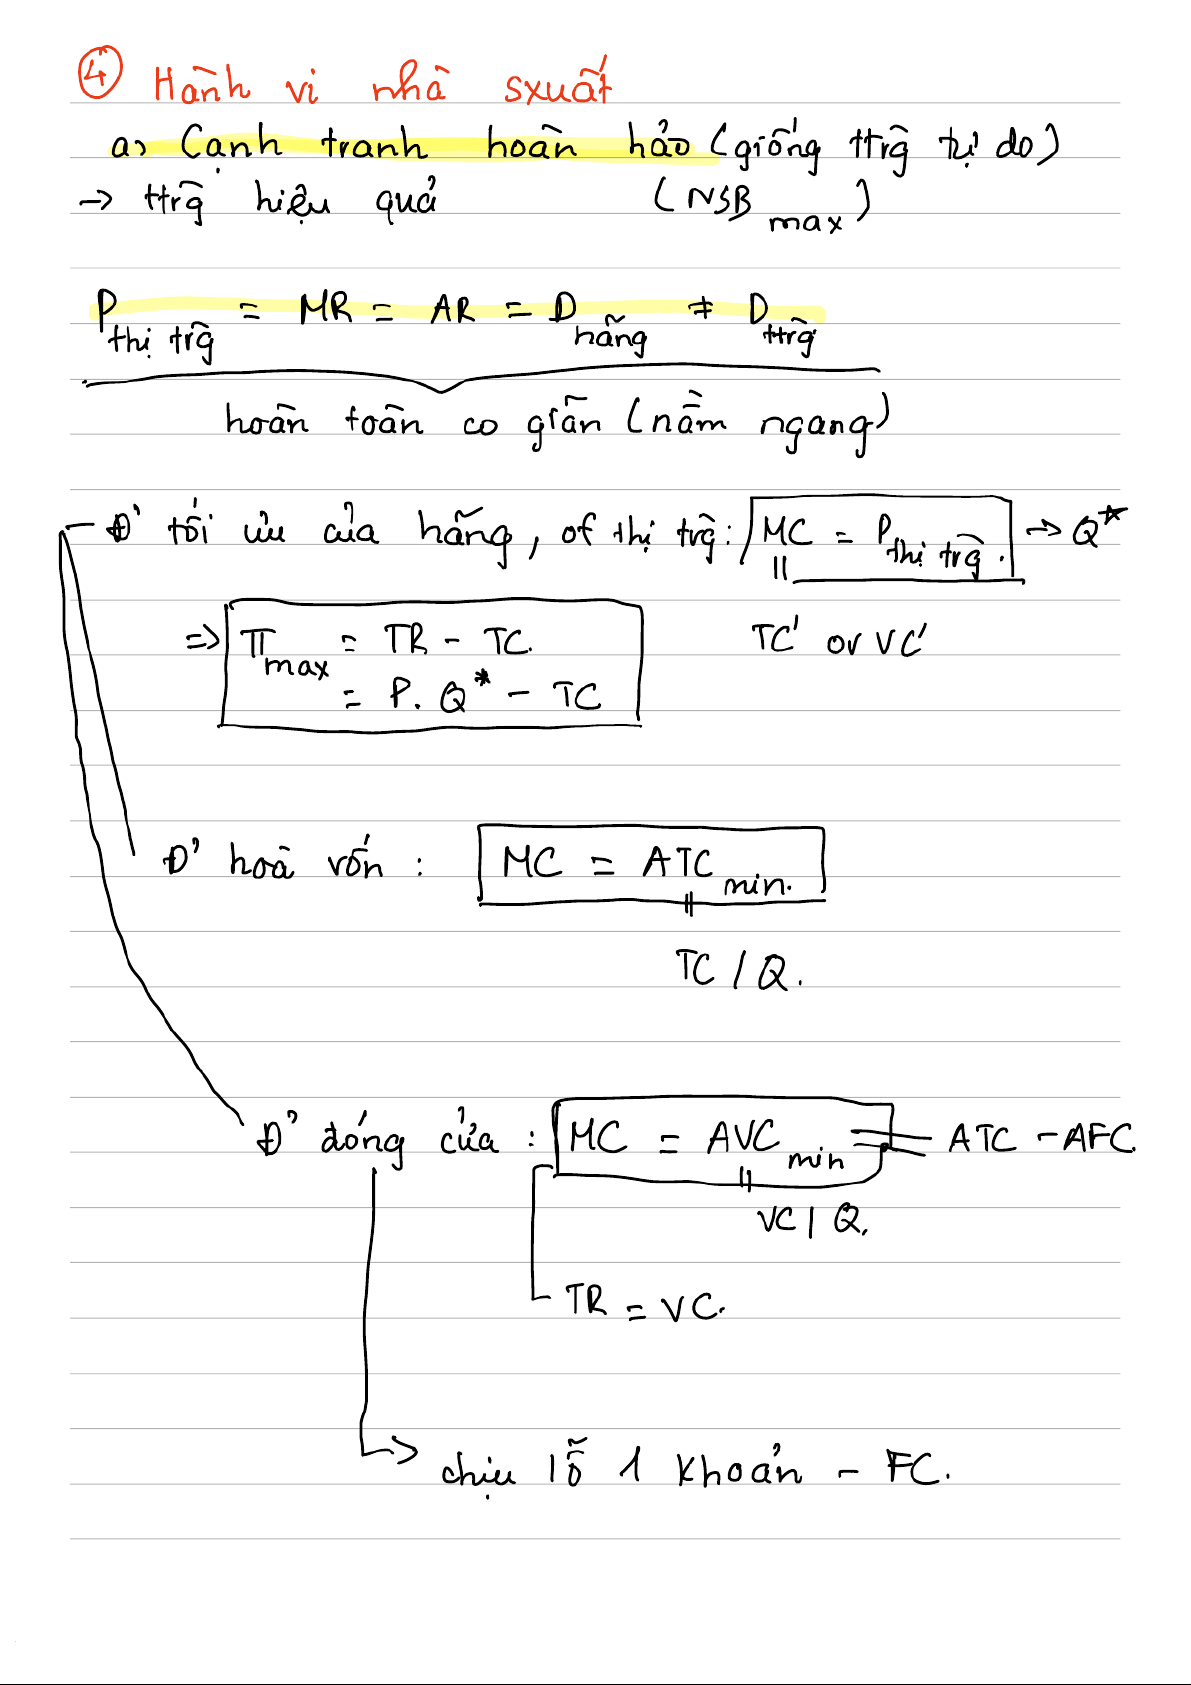 ④ Hành vi nhà sxuất
a, Cạnh tranh hoàn hảo (giống ttrg̀ tự do)
→ ttrg̀ hiệu quả (NSB max)
P thị trg̀ = MR = AR = D hãng ≠ D ttrg̀
hoàn toàn co giãn (nằm ngang)
Đ' tối ưu của hãng, of thị trg̀: MC = P thị trg̀. → Q*
=> π max = TR - TC. TC' or VC'
= P. Q* - TC
Đ' hoà vốn : MC = ATC min.
TC / Q.
Đ' đóng cửa : MC = AVC min = ATC - AFC.
VC / Q.
TR = VC.
→ chịu lỗ 1 khoản - FC.